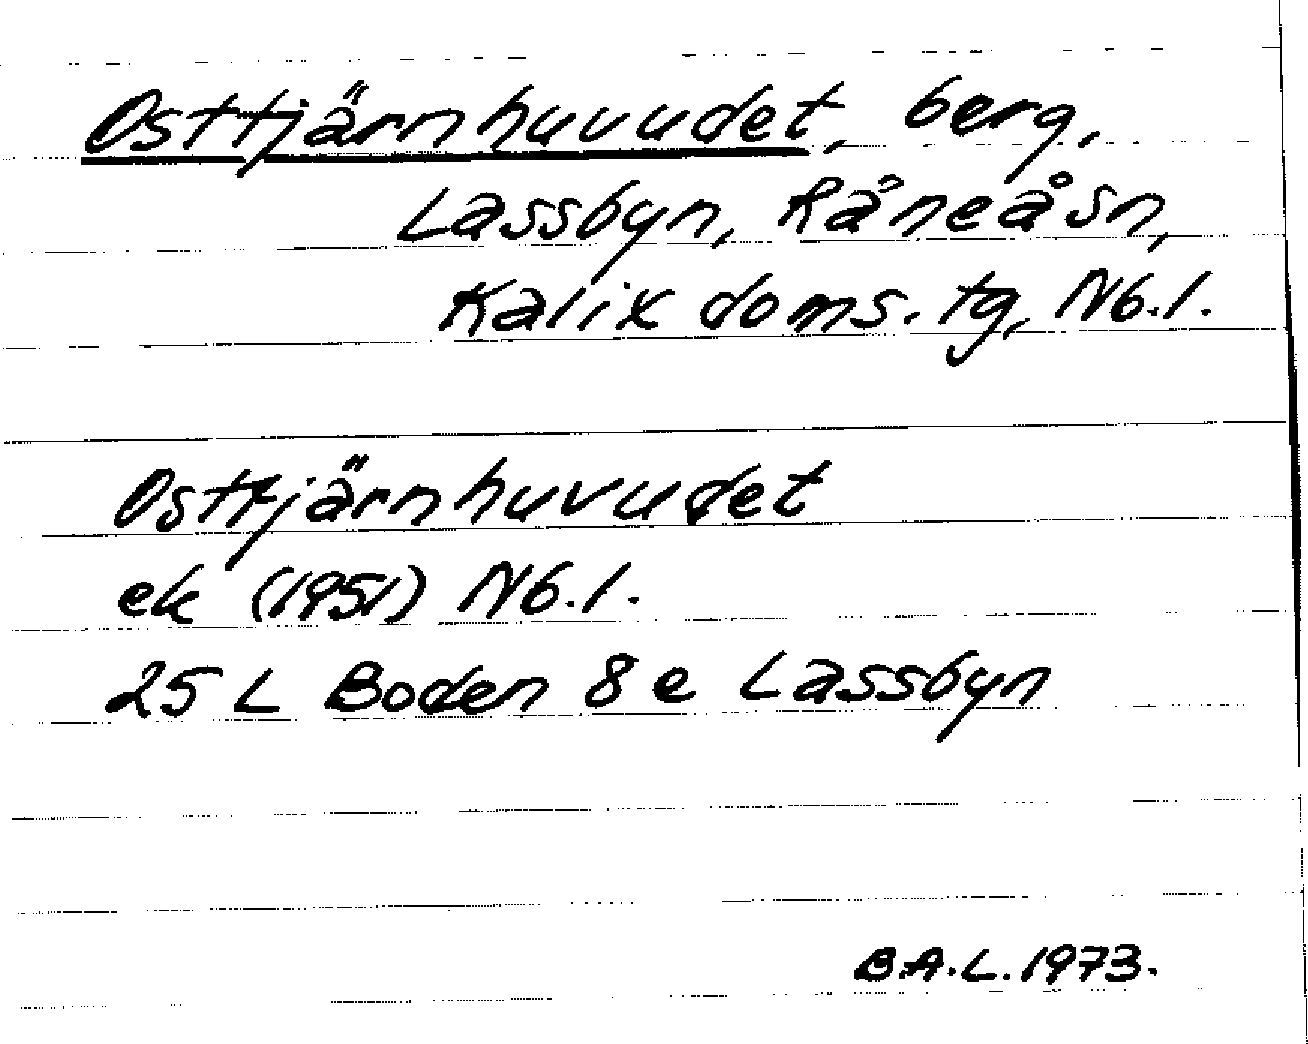 Osttjärnhuvudet, berg,
Lassbyn, Råneåsn,
Kalix doms. tg, Nb.l.
Osttjärnhuvudet
ek (1951) Nb.l.
25 L Boden 8 e Lassbyn
B.A.L. 1973.